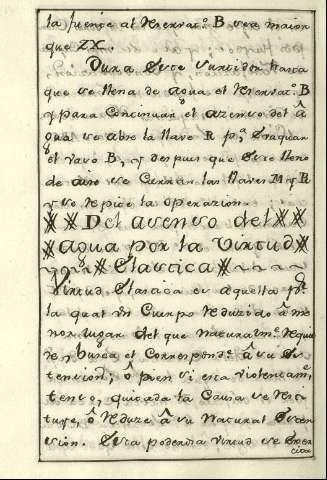 la fuente al Reservat.º B sea maior
que ZX.
Dura este surtidor hasta
que se llena de agua el Reservat.º B
y para continuar el azenso del â
gua se abre la llave R p.ª desaguar
el vaso B, y despues que este lleno
de aire se cierran las llaves M y R
y se repite la operazion.
Del asenso del
agua por la Virtud
Elastica
Virtud Elastica es aquella p.r
la qual un Cuerpo reduzido â me
nor lugar del que naturalm.te
y busca el correspond.e â su ex
tencion; ô bien si esta violentam.te
tenso, quitada la causa se resti
tuye, ô reduze â su natural exten
sion. Esta potencia virtud se exer
cita